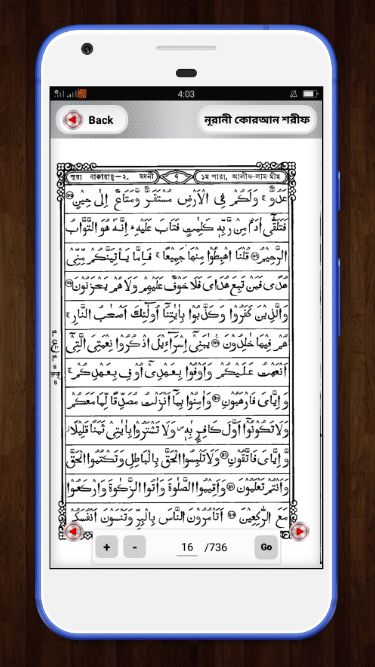 4:03
Back
নূরানী কোরআন শরীফ
সূরা বাকারাহ্-২, মদনী
৭
১ম পারা, আলীফ-লাম মীম
عَدُوٌّ ۚ وَلَكُمْ فِي الْأَرْضِ مُسْتَقَرٌّ وَّمَتَاعٌ إِلٰى حِيْنٍ
فَتَلَقّٰى اٰدَمُ مِنْ رَّبِّهٖ كَلِمٰتٍ فَتَابَ عَلَيْهِ ؕ اِنَّهٗ هُوَ التَّوَّابُ
الرَّحِيْمُ قُلْنَا اهْبِطُوْا مِنْهَا جَمِيْعًا ۚ فَاِمَّا يَاْتِيَنَّكُمْ مِّنِّيْ
هُدًى فَمَنْ تَبِعَ هُدَايَ فَلَا خَوْفٌ عَلَيْهِمْ وَلَا هُمْ يَحْزَنُوْنَ
وَالَّذِيْنَ كَفَرُوْا وَكَذَّبُوْا بِاٰيٰتِنَآ اُولٰٓئِكَ اَصْحٰبُ النَّارِ ۚ
هُمْ فِيْهَا خٰلِدُوْنَ يٰبَنِيْٓ اِسْرَآءِيْلَ اذْكُرُوْا نِعْمَتِيَ الَّتِيْٓ
اَنْعَمْتُ عَلَيْكُمْ وَاَوْفُوْا بِعَهْدِيْٓ اُوْفِ بِعَهْدِكُمْ ۚ
وَاِيَّايَ فَارْهَبُوْنِ وَاٰمِنُوْا بِمَآ اَنْزَلْتُ مُصَدِّقًا لِّمَا مَعَكُمْ
وَلَا تَكُوْنُوْٓا اَوَّلَ كَافِرٍۭ بِهٖ ۪ وَلَا تَشْتَرُوْا بِاٰيٰتِيْ ثَمَنًا قَلِيْلًا ۫
وَّاِيَّايَ فَاتَّقُوْنِ وَلَا تَلْبِسُوا الْحَقَّ بِالْبَاطِلِ وَتَكْتُمُوا الْحَقَّ
وَاَنْتُمْ تَعْلَمُوْنَ وَاَقِيْمُوا الصَّلٰوةَ وَاٰتُوا الزَّكٰوةَ وَارْكَعُوْا
مَعَ الرّٰكِعِيْنَ اَتَاْمُرُوْنَ النَّاسَ بِالْبِرِّ وَتَنْسَوْنَ اَنْفُسَكُمْ
+ - 16 /736 Go